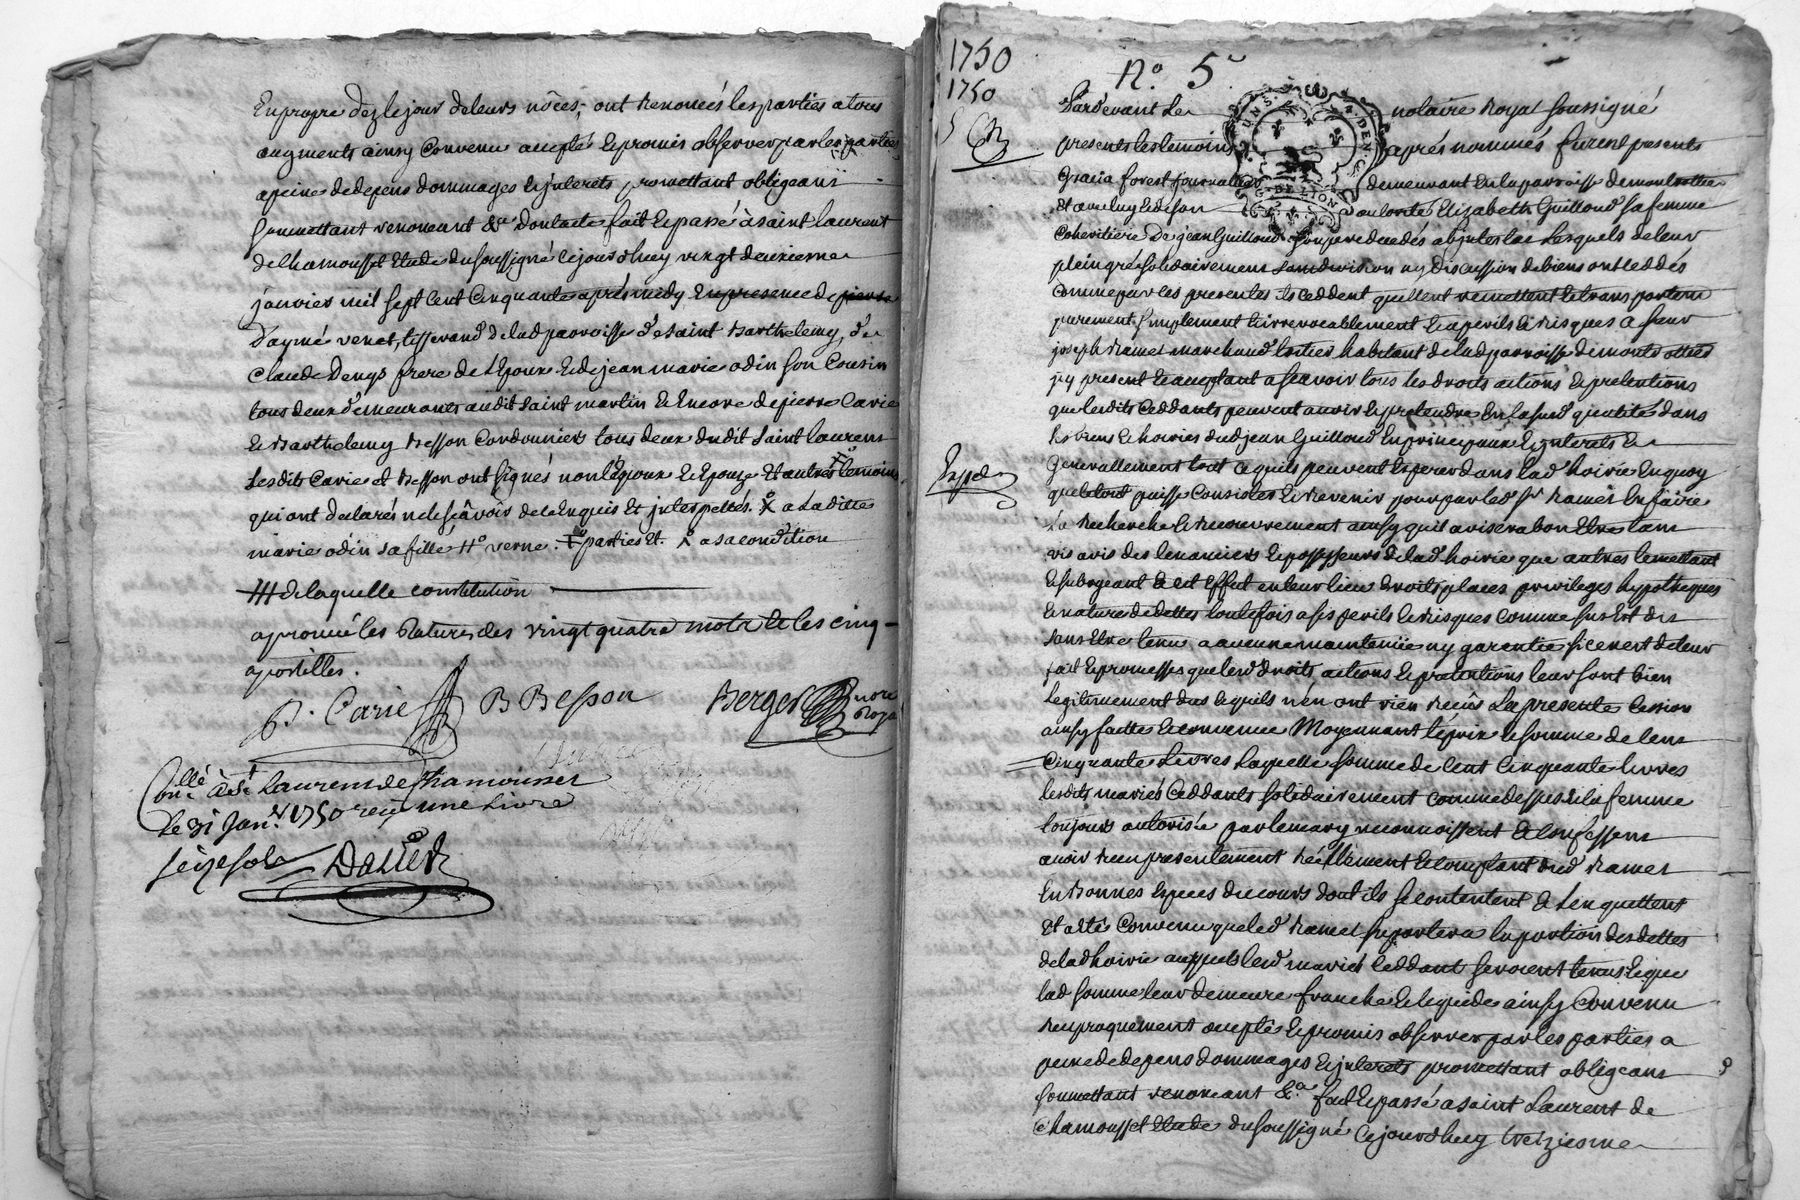 En propre dez le jour de leurs nôces, ont renoncés les parties a tous
augments ainsy Convenu accepté et promis observer par les parties
a peine de depens dommages et jnterets, promettant obligeant
soumettant renonceant &a dont acte fait et passé à saint laurent
de Chamousset Etude du soussigné cejourdhuy vingt deuxieme
janvier mil sept cent Cinquante après midy En presence de pierre
D'aymé venet, tisserand de lad parroisse de saint Barthelemy, de
Claude Denys frere de l'Epoux et de jean marie odin son Cousin
tous deux demeurants audit saint martin et Encore de pierre Carie
et Barthelemy Besson Cordonniers tous deux dudit saint laurent
Lesdits Carie et Besson ont signés non l'Epoux et Epouze Et autres temoins
qui ont declarés ne le sçâvoir de ce Enquis Et jnterpellés. a Laditte
marie odin sa fille verne. parties et. a sa condition
de laquelle constitution
aprouvé les ratures des vingt quatre mots et les cinq
apostilles.
P. Carie B Besson Berger nore
Royal
Conllé à St Laurent de Chamousset
le 31 Janr 1750 reçu une Livre
seize sols
1750
1750
5
No 5
Pardevant Le notaire Royal soussigné
presents les temoins après nommés furent presents
forest journallier demeurant En la parroisse de montrottier
Et Elizabeth Guilloud sa femme
Coheritiere De jean Guilloud son pere decedés abjntestat Lesquels de leur
plein gré solidairement sans division ny Discussion de biens ont ceddés
Comme par les presentes ils ceddent quittent remettent et transportent
purement simplement et irrevocablement et a perils et risques a sieur
joseph Ramel marchand habitant de lad parroisse de montrottier
jcy present et acceptant a scavoir tous les droits actions et pretentions
que lesdits Ceddants peuvent avoir et pretendre En la susd qualité dans
les biens et hoiries dud jean Guilloud En principaux et jnterets et
Generallement tout ce quils peuvent Esperer dans lad hoirie En quoy
Exped
que le tout puisse Consister et revenir pour par led sr Ramel En faire
La recherche et recouvrement ainsy quil avisera bon Etre tant
vis avis des tenanciers et possesseurs de lad hoirie que autres le mettant
et subrogeant a cet Effet en leur lieu droits places privileges hypotheques
et nature de dettes toutefois a ses perils et risques Comme sus Est dit
sans Etre tenu a aucune maintenüe ny garentie si ce n'est de leur
fait et promesses que lesd droits actions et pretentions leur sont bien
Legitimement dus et quils n'en ont rien reçûs La presente Cession
ainsy faitte et convenue Moyennant le prix et somme de Cent
Cinquante Livres Laquelle somme de Cent Cinquante livres
lesdits mariés Ceddants solidairement comme dessus et la femme
toujours autorisée par le mary reconnoissent et Confessent
avoir reçu presentement réellement et comptant dud Ramel
En Bonnes Especes de cours dont ils se contentent et l'en quittent
Et a Eté Convenu que led Ramel suportera la portion des dettes
de lad hoirie auxquels lesd mariés Ceddant seroient tenus et que
lad somme leur demeure franche et liquide ainsy Convenu
reciproquement accepté et promis observer par les parties a
peine de depens dommages et jnterets promettant obligeant
soumettant renonceant &a fait et passé a saint Laurent de
Chamousset Etude du soussigné Cejourdhuy treizieme